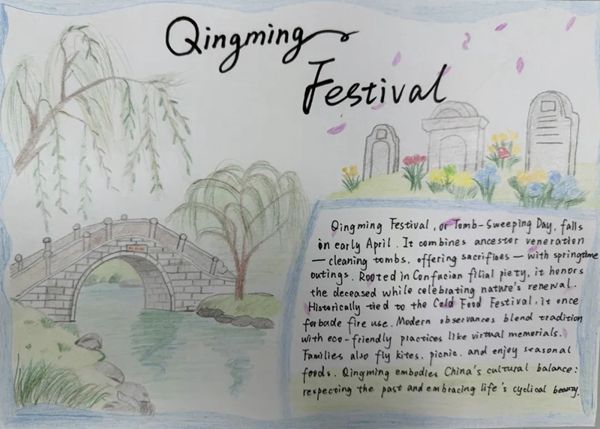 Qingming
Festival
Qingming Festival, or Tomb-Sweeping Day, falls
in early April. It combines ancestor veneration
— cleaning tombs, offering sacrifices — with springtime
outings. Rooted in Confucian filial piety, it honors
the deceased while celebrating nature's renewal.
Historically tied to the Cold Food Festival, it once
forbade fire use. Modern observances blend tradition
with eco-friendly practices like virtual memorials.
Families also fly kites, picnic, and enjoy seasonal
foods. Qingming embodies China's cultural balance:
respecting the past and embracing life's cyclical beauty.